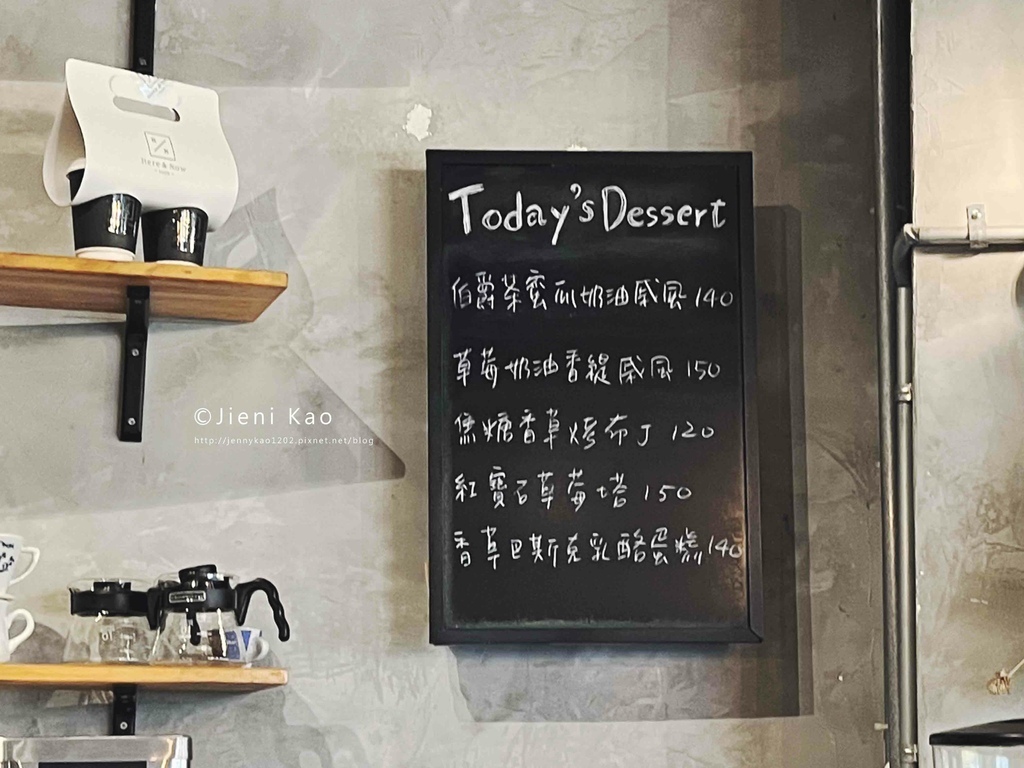 Here & Now
Today's Dessert
伯爵茶蜜瓜奶油戚風 140
草莓奶油香緹戚風 150
焦糖香草烤布丁 120
紅寶石草莓塔 150
香草巴斯克乳酪蛋糕 140
©Jieni Kao
http://jennykao1202.pixnet.net/blog